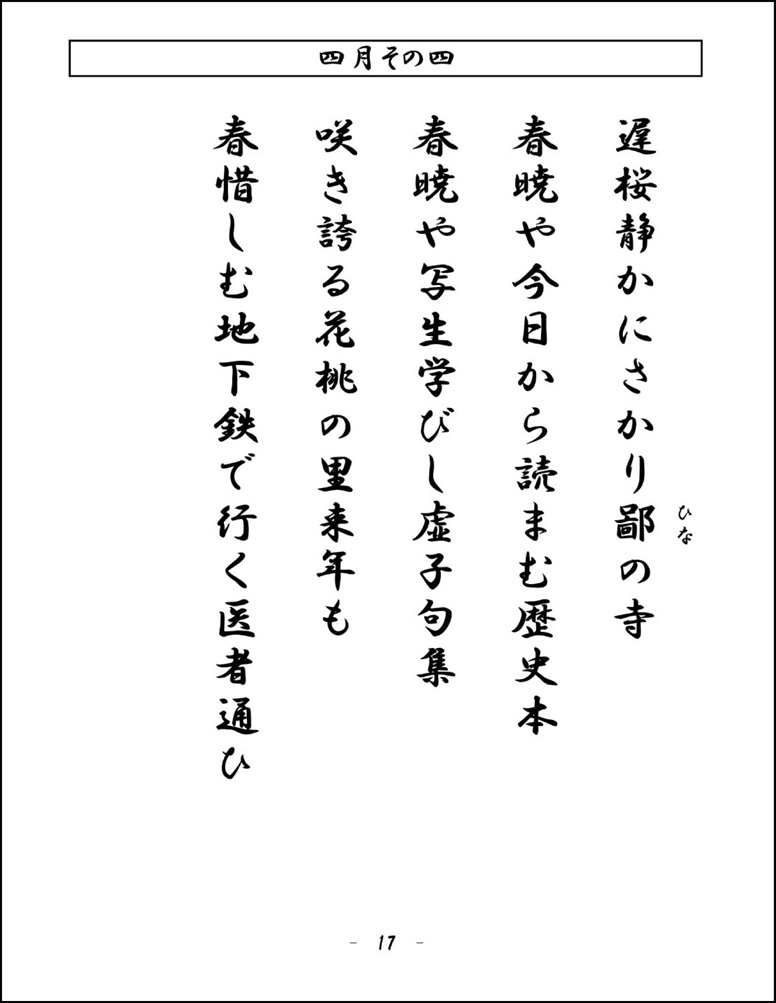 四月その四
遅桜静かにさかり鄙の寺
ひな
春暁や今日から読まむ歴史本
春暁や写生学びし虚子句集
咲き誇る花桃の里来年も
春惜しむ地下鉄で行く医者通ひ
- 17 -